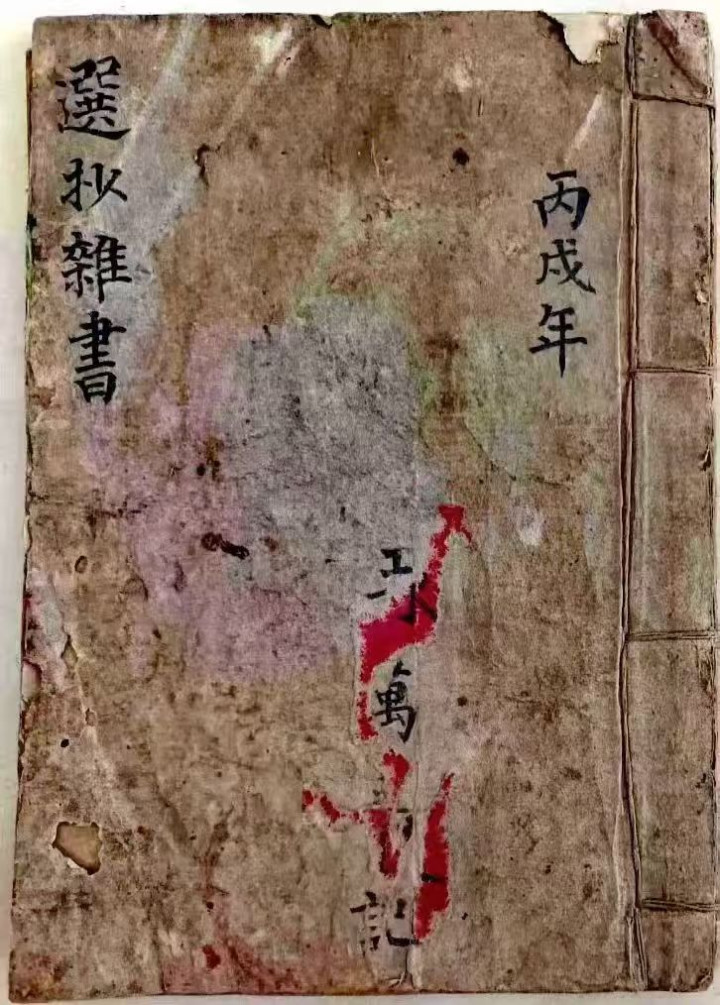 丙戌年
萬記
選抄雜書